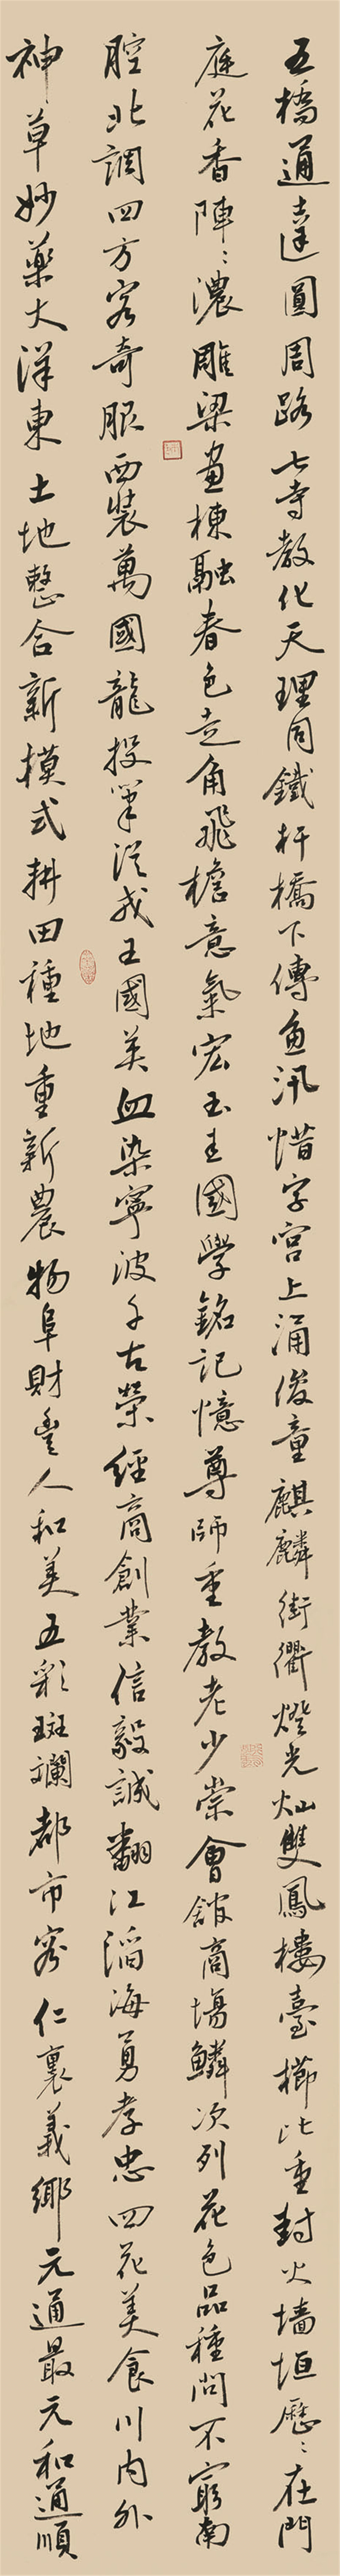 五橋通達圓周路七寺教化天理同鐵杆橋下傳魚汛惜字宮上涌俊童麒麟街衢燈光灿雙鳳樓臺櫛比重封火墙垣歷〻在門
庭花香陣〻濃雕梁畫棟融春色走角飛檐意氣宏玉圭國學銘記憶尊師重教老少崇會館商場鱗次列花色品種問不窮南
腔北調四方客奇服西裝萬國龍投筆從戎王國英血染寧波千古榮經商創業信毅誠翻江滔海勇孝忠四花美食川内外
神草妙藥大洋東土地整合新模式耕田種地重新農物阜財豊人和美五彩斑斕都市容仁裏義鄉元通最元和通順